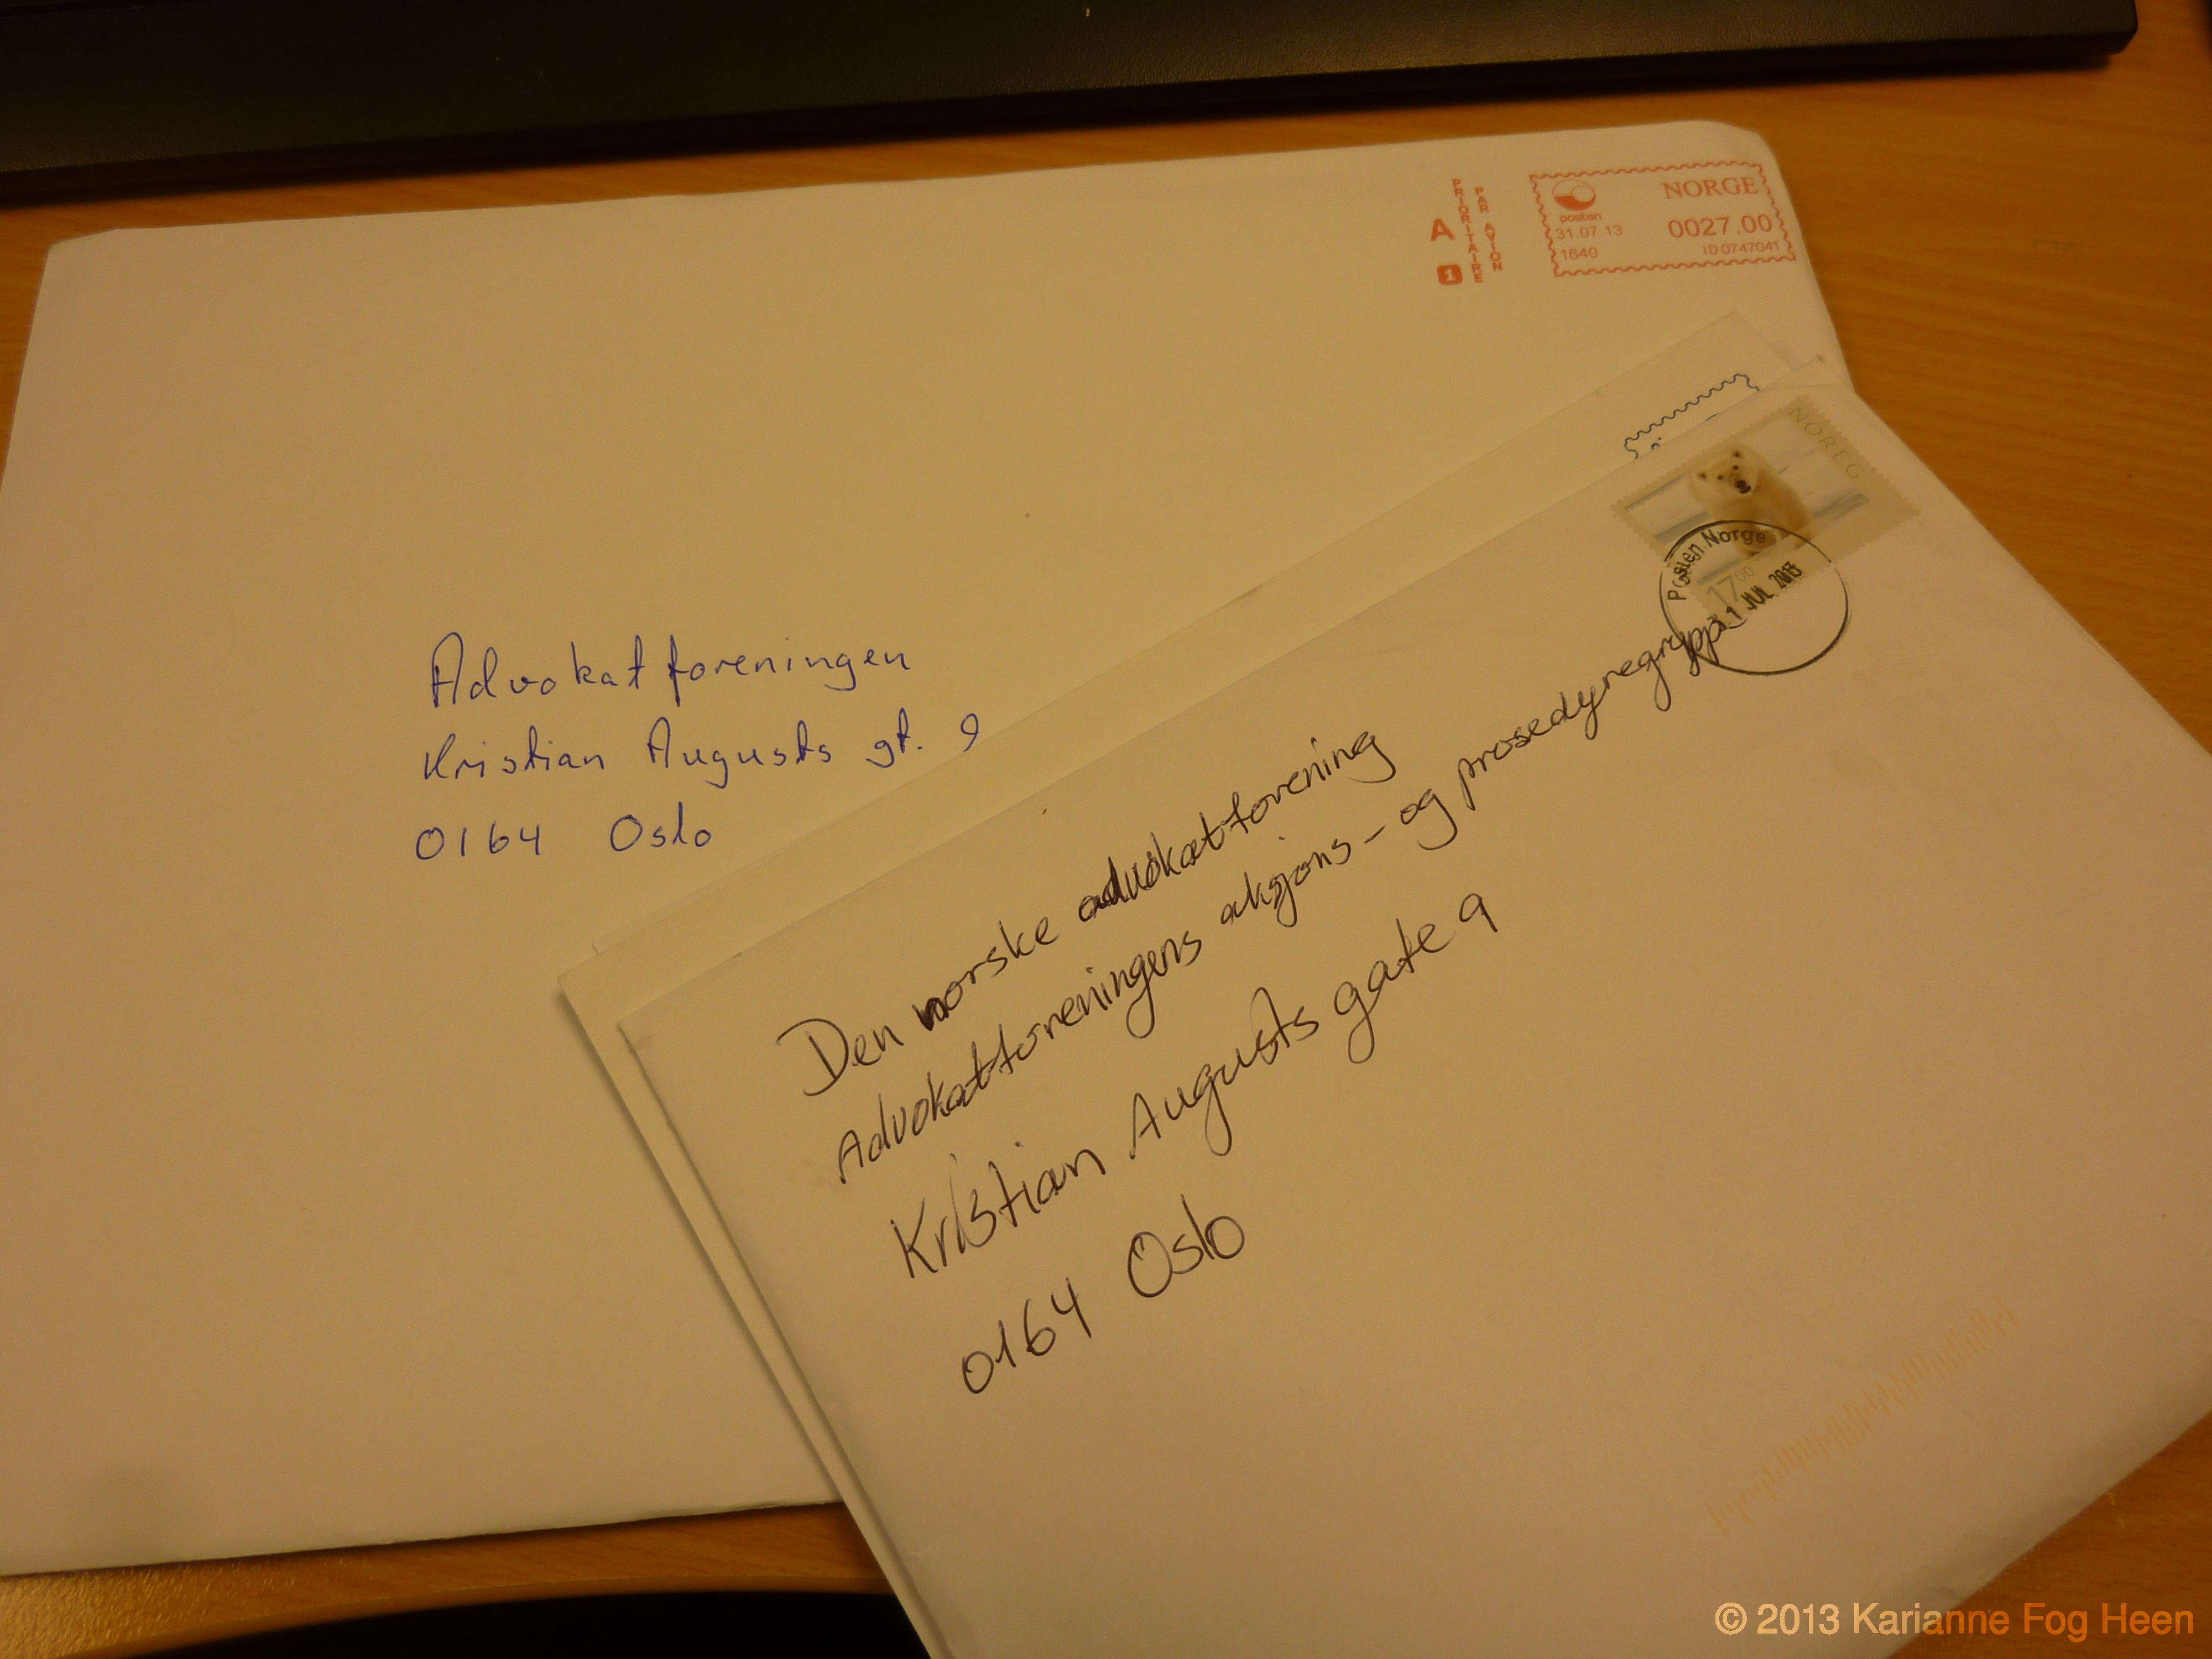 A
PRIORITAIRE
PAR AVION
1
posten
NORGE
31.07.13
0027.00
1640
ID0747041
Advokatforeningen
Kristian Augusts gt. 9
0164 Oslo
NOREG
Posten Norge
17 00
31 JUL 2013
Den norske advokatforening
Advokatforeningens aksjons- og prosedyregruppe
Kristian Augusts gate 9
0164 Oslo
© 2013 Karianne Fog Heen